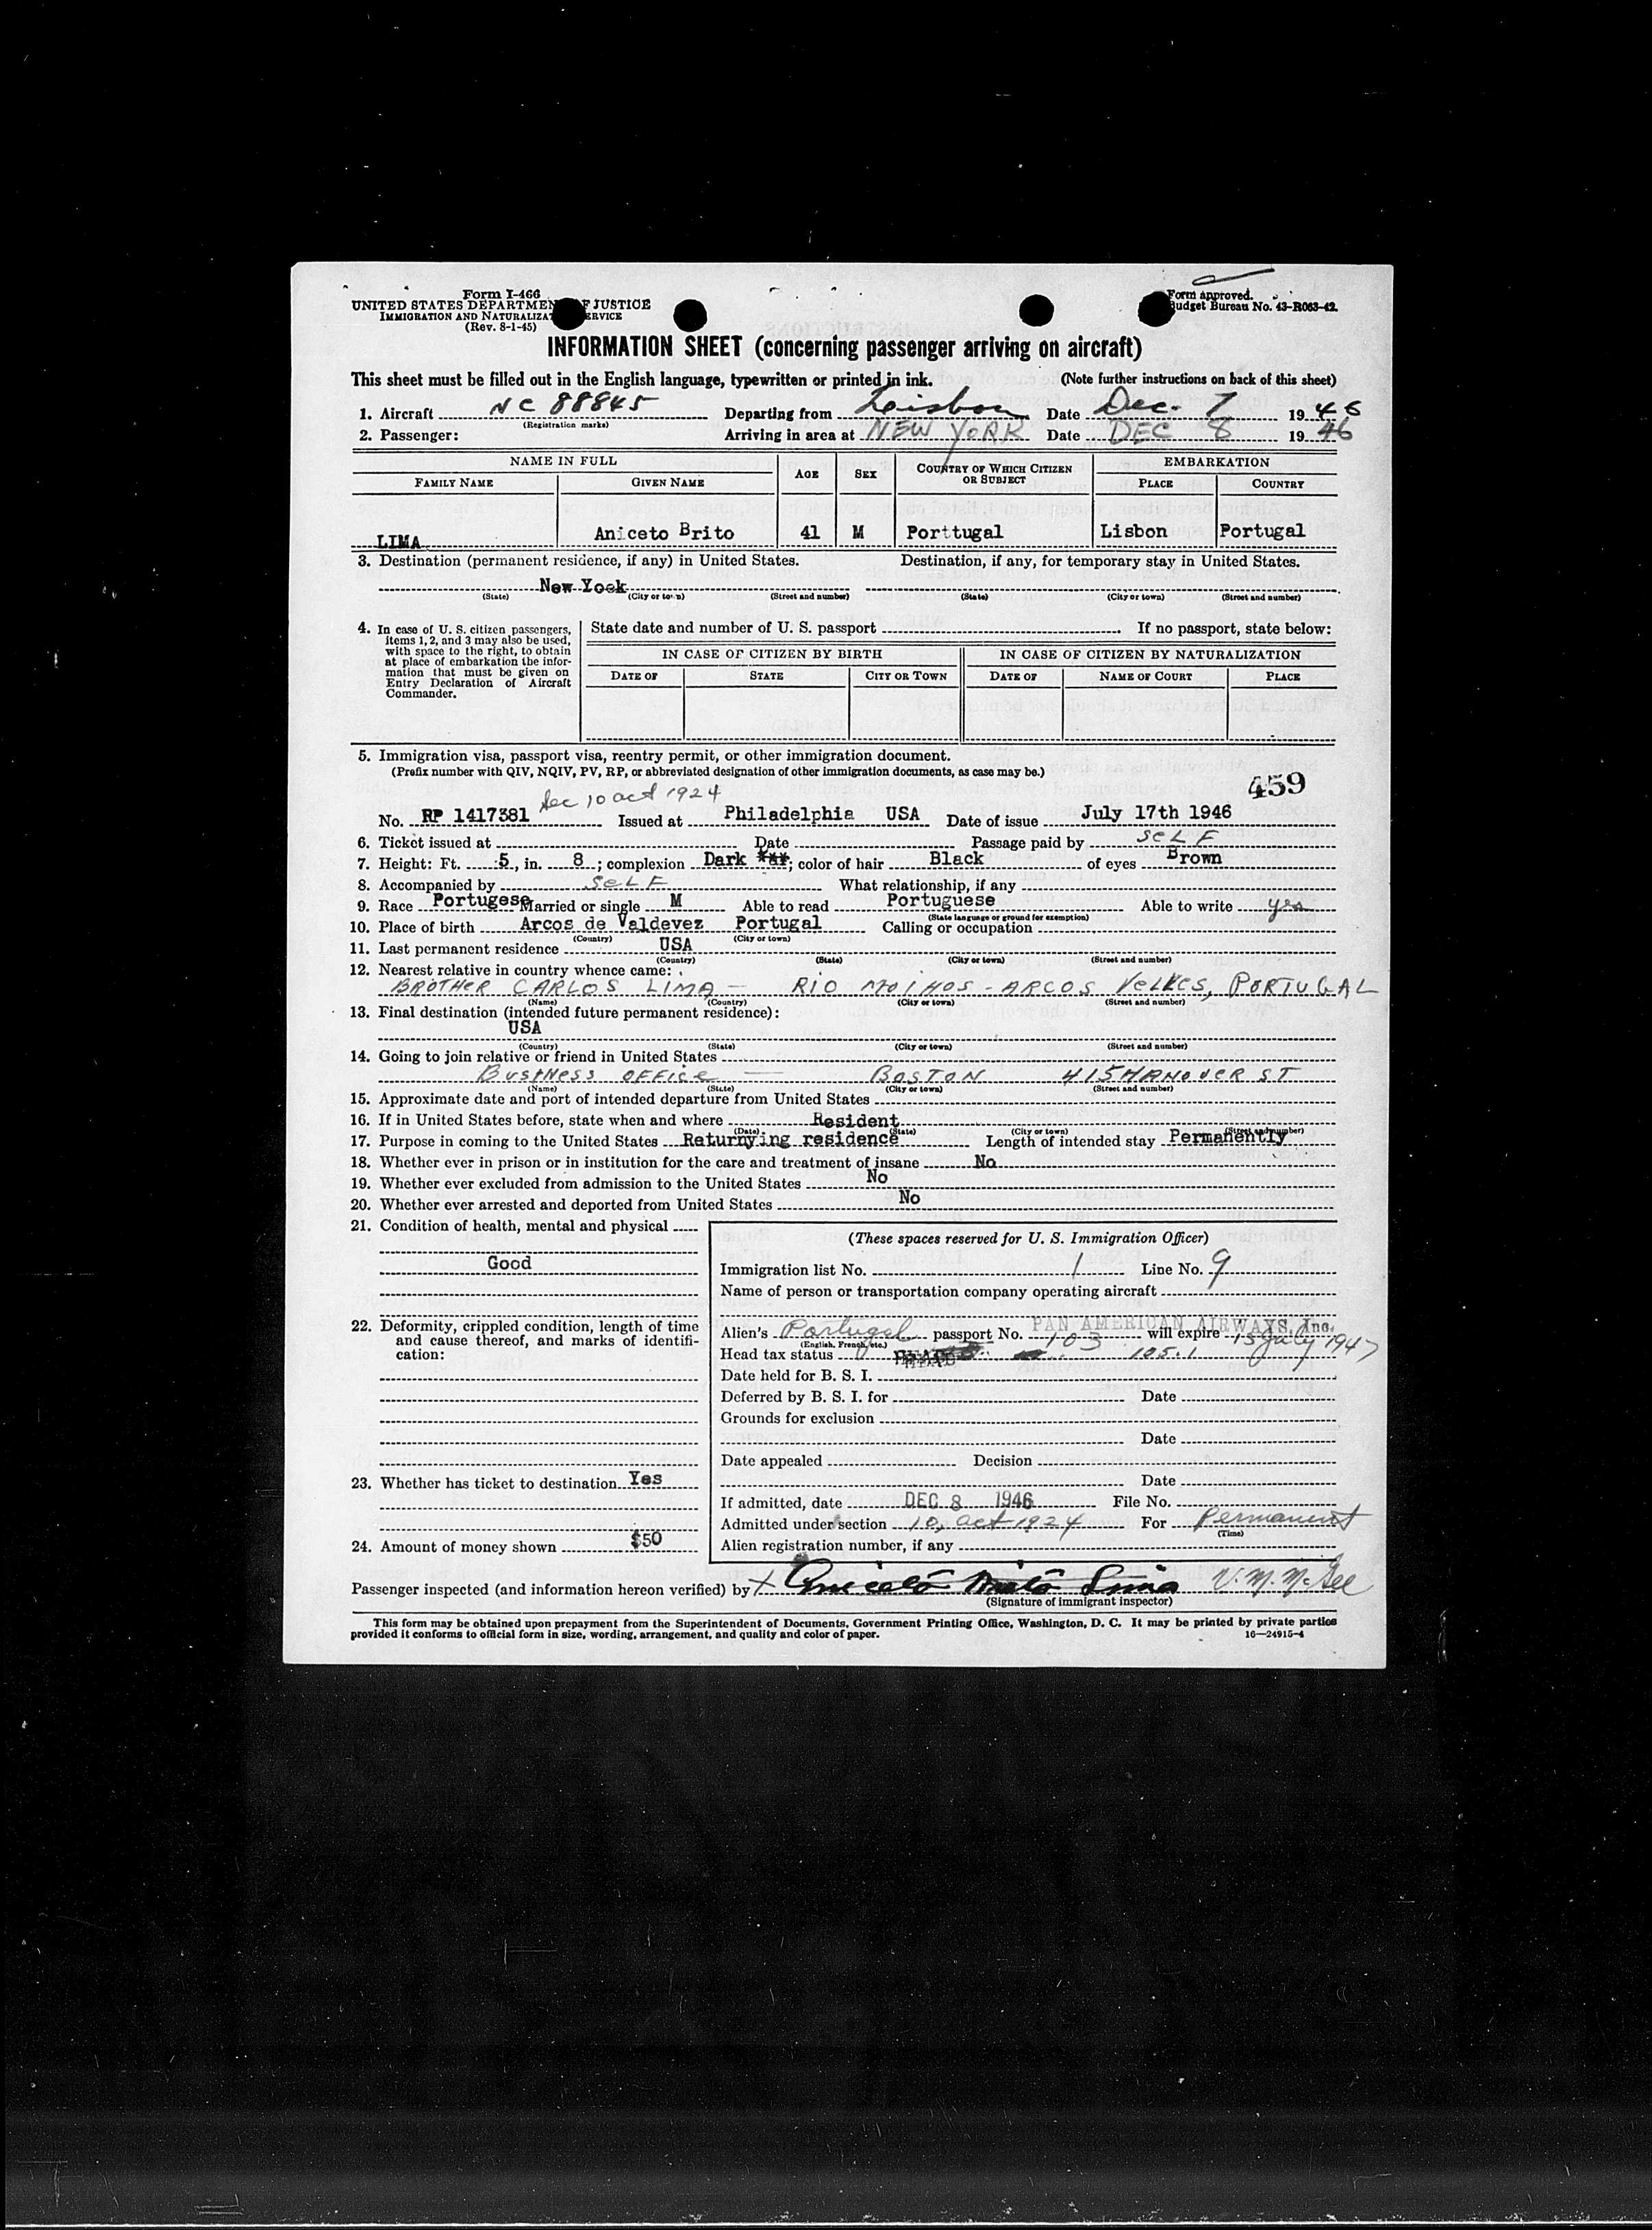 Form I-466
UNITED STATES DEPARTMEN F JUSTICE
IMMIGRATION AND NATURALIZAT ERVICE
(Rev. 8-1-45)
Form approved.
Budget Bureau No. 43-R063-42.
INFORMATION SHEET (concerning passenger arriving on aircraft)
This sheet must be filled out in the English language, typewritten or printed in ink. (Note further instructions on back of this sheet)
1. Aircraft NC 88845 Departing from Leisbon Date Dec. 7 1946
(Registration marks)
2. Passenger: Arriving in area at NEW YORK Date DEC 8 1946
NAME IN FULL AGE SEX COUNTRY OF WHICH CITIZEN OR SUBJECT EMBARKATION
FAMILY NAME GIVEN NAME PLACE COUNTRY
LIMA Aniceto Brito 41 M Porttugal Lisbon Portugal
3. Destination (permanent residence, if any) in United States. Destination, if any, for temporary stay in United States.
New Yook
(State) (City or town) (Street and number) (State) (City or town) (Street and number)
4. In case of U. S. citizen passengers, items 1, 2, and 3 may also be used, with space to the right, to obtain at place of embarkation the information that must be given on Entry Declaration of Aircraft Commander.
State date and number of U. S. passport If no passport, state below:
IN CASE OF CITIZEN BY BIRTH IN CASE OF CITIZEN BY NATURALIZATION
DATE OF STATE CITY OR TOWN DATE OF NAME OF COURT PLACE
5. Immigration visa, passport visa, reentry permit, or other immigration document.
(Prefix number with QIV, NQIV, PV, RP, or abbreviated designation of other immigration documents, as case may be.)
459
Sec 10 act 1924
No. RP 1417381 Issued at Philadelphia USA Date of issue July 17th 1946
6. Ticket issued at Date Passage paid by SELF
7. Height: Ft. 5, in. 8; complexion Dark; color of hair Black of eyes Brown
8. Accompanied by SELF What relationship, if any
9. Race Portugese Married or single M Able to read Portuguese Able to write yes
(State language or ground for exemption)
10. Place of birth Arcos de Valdevez Portugal Calling or occupation
(Country) (City or town)
11. Last permanent residence USA
(Country) (State) (City or town) (Street and number)
12. Nearest relative in country whence came:
BROTHER CARLOS LIMA - RIO MOIHOS - ARCOS PORTUGAL
(Name) (Country) (City or town) (Street and number)
13. Final destination (intended future permanent residence):
USA
(Country) (State) (City or town) (Street and number)
14. Going to join relative or friend in United States
BUSINESS OFFICE — BOSTON 415 HANOVER ST
(Name) (State) (City or town) (Street and number)
15. Approximate date and port of intended departure from United States
16. If in United States before, state when and where Resident
(Date) (State) (City or town) (Street and number)
17. Purpose in coming to the United States Returnying residence Length of intended stay Permanently
18. Whether ever in prison or in institution for the care and treatment of insane No
19. Whether ever excluded from admission to the United States No
20. Whether ever arrested and deported from United States No
21. Condition of health, mental and physical
Good
22. Deformity, crippled condition, length of time and cause thereof, and marks of identification:
23. Whether has ticket to destination Yes
24. Amount of money shown $50
(These spaces reserved for U. S. Immigration Officer)
Immigration list No. 1 Line No. 9
Name of person or transportation company operating aircraft
PAN AMERICAN AIRWAYS, Inc.
Alien's Portugal passport No. 103 will expire 15 July 1947
(English, French, etc.)
Head tax status 105.1
Date held for B. S. I.
Deferred by B. S. I. for Date
Grounds for exclusion
Date
Date appealed Decision
Date
If admitted, date DEC 8 1946 File No.
Admitted under section 10, act 1924 For Permanent
(Time)
Alien registration number, if any
Passenger inspected (and information hereon verified) by X Aniceto Brito Lima V. M. McGee
(Signature of immigrant inspector)
This form may be obtained upon prepayment from the Superintendent of Documents, Government Printing Office, Washington, D. C. It may be printed by private parties
provided it conforms to official form in size, wording, arrangement, and quality and color of paper. 16—24915-4